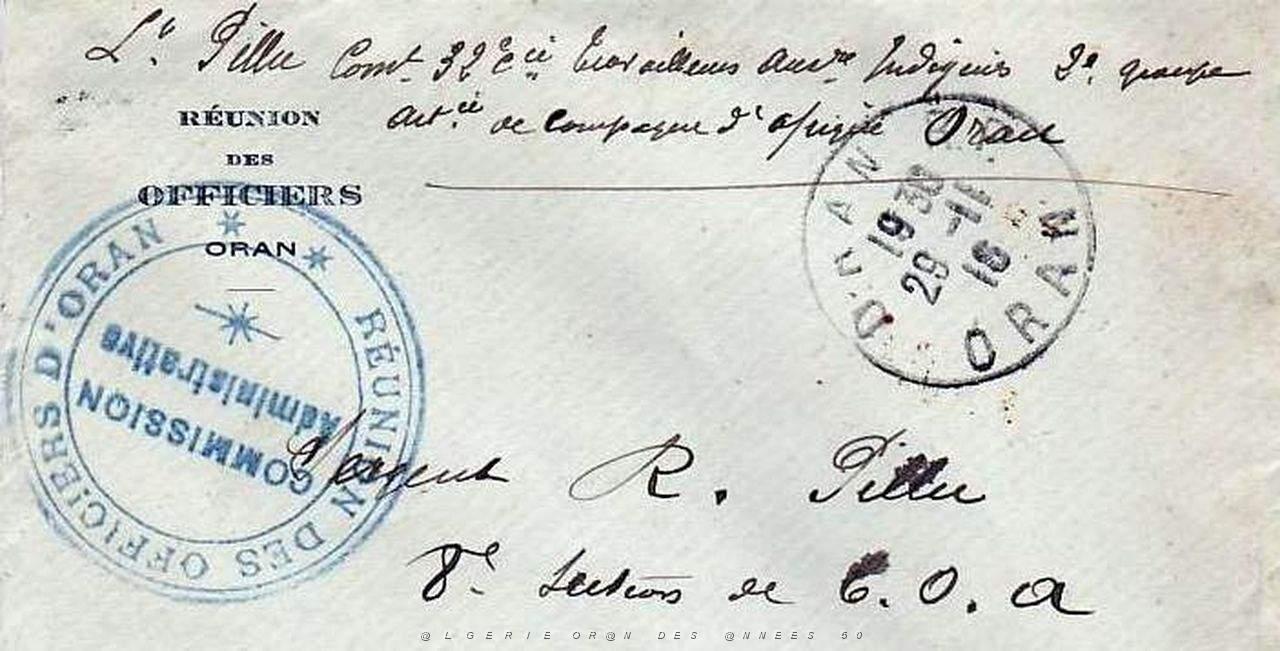 Lt. Pillu Comt 32e Cie travailleurs auxre Indigènes 2e groupe
artie de campagne d'afrique Oran
RÉUNION
DES
OFFICIERS
ORAN
RÉUNION DES OFFICIERS D'ORAN
COMMISSION
Administrative
ORAN
19 30
29 - 11
16
ORAN
Sergent R. Pillu
8e section de C. O. a
@LGERIE OR@N DES @NNEES 50